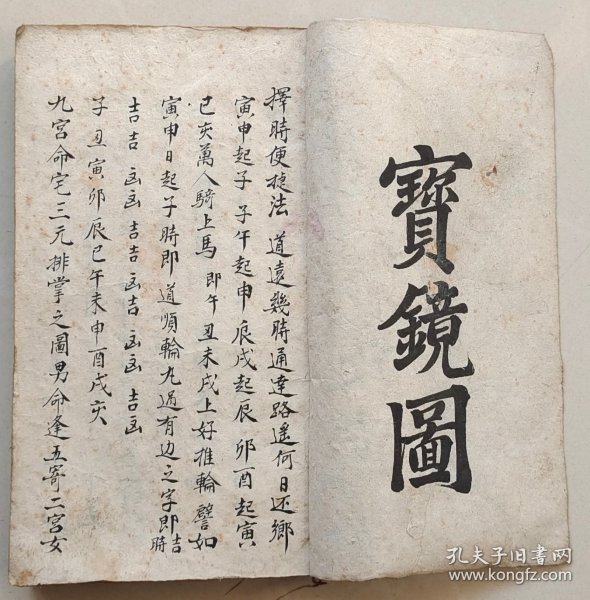 寶鏡圖
擇時便捷法 道遠幾時通達路遙何日还鄉
寅申起子 子午起申 辰戌起辰 卯酉起寅
巳亥萬人騎上馬 即午 丑未戌上好推輪譬如
寅申日起子時即道順輪九過有边之字即吉時
吉吉 凶凶 吉吉 凶吉 凶凶 吉凶
子丑寅卯辰巳午未申酉戌亥
九宮命宅三元排掌之圖男命逢五寄二宮女
孔夫子旧书网
www.kongfz.com